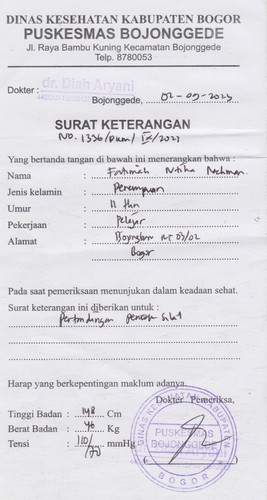 DINAS KESEHATAN KABUPATEN BOGOR
PUSKESMAS BOJONGGEDE
Jl. Raya Bambu Kuning Kecamatan Bojonggede
Telp. 8780053
Dokter : dr. Diah Aryani
Bojonggede, 02-09-2023
SURAT KETERANGAN
No. 1336/Pkm/IX/2023
Yang bertanda tangan di bawah ini menerangkan bahwa :
Nama : Fatimah
Jenis kelamin : Perempuan
Umur : 11 thn
Pekerjaan : Pelajar
Alamat : RT 03/02
Bogor
Pada saat pemeriksaan menunjukan dalam keadaan sehat.
Surat keterangan ini diberikan untuk :
Pertandingan pencak silat
Harap yang berkepentingan maklum adanya.
Dokter Pemeriksa,
Tinggi Badan : 148 Cm
Berat Badan : 46 Kg
Tensi : 110/70 mmHg
DINAS KESEHATAN KABUPATEN
PUSKESMAS
BOJONGGEDE
BOGOR